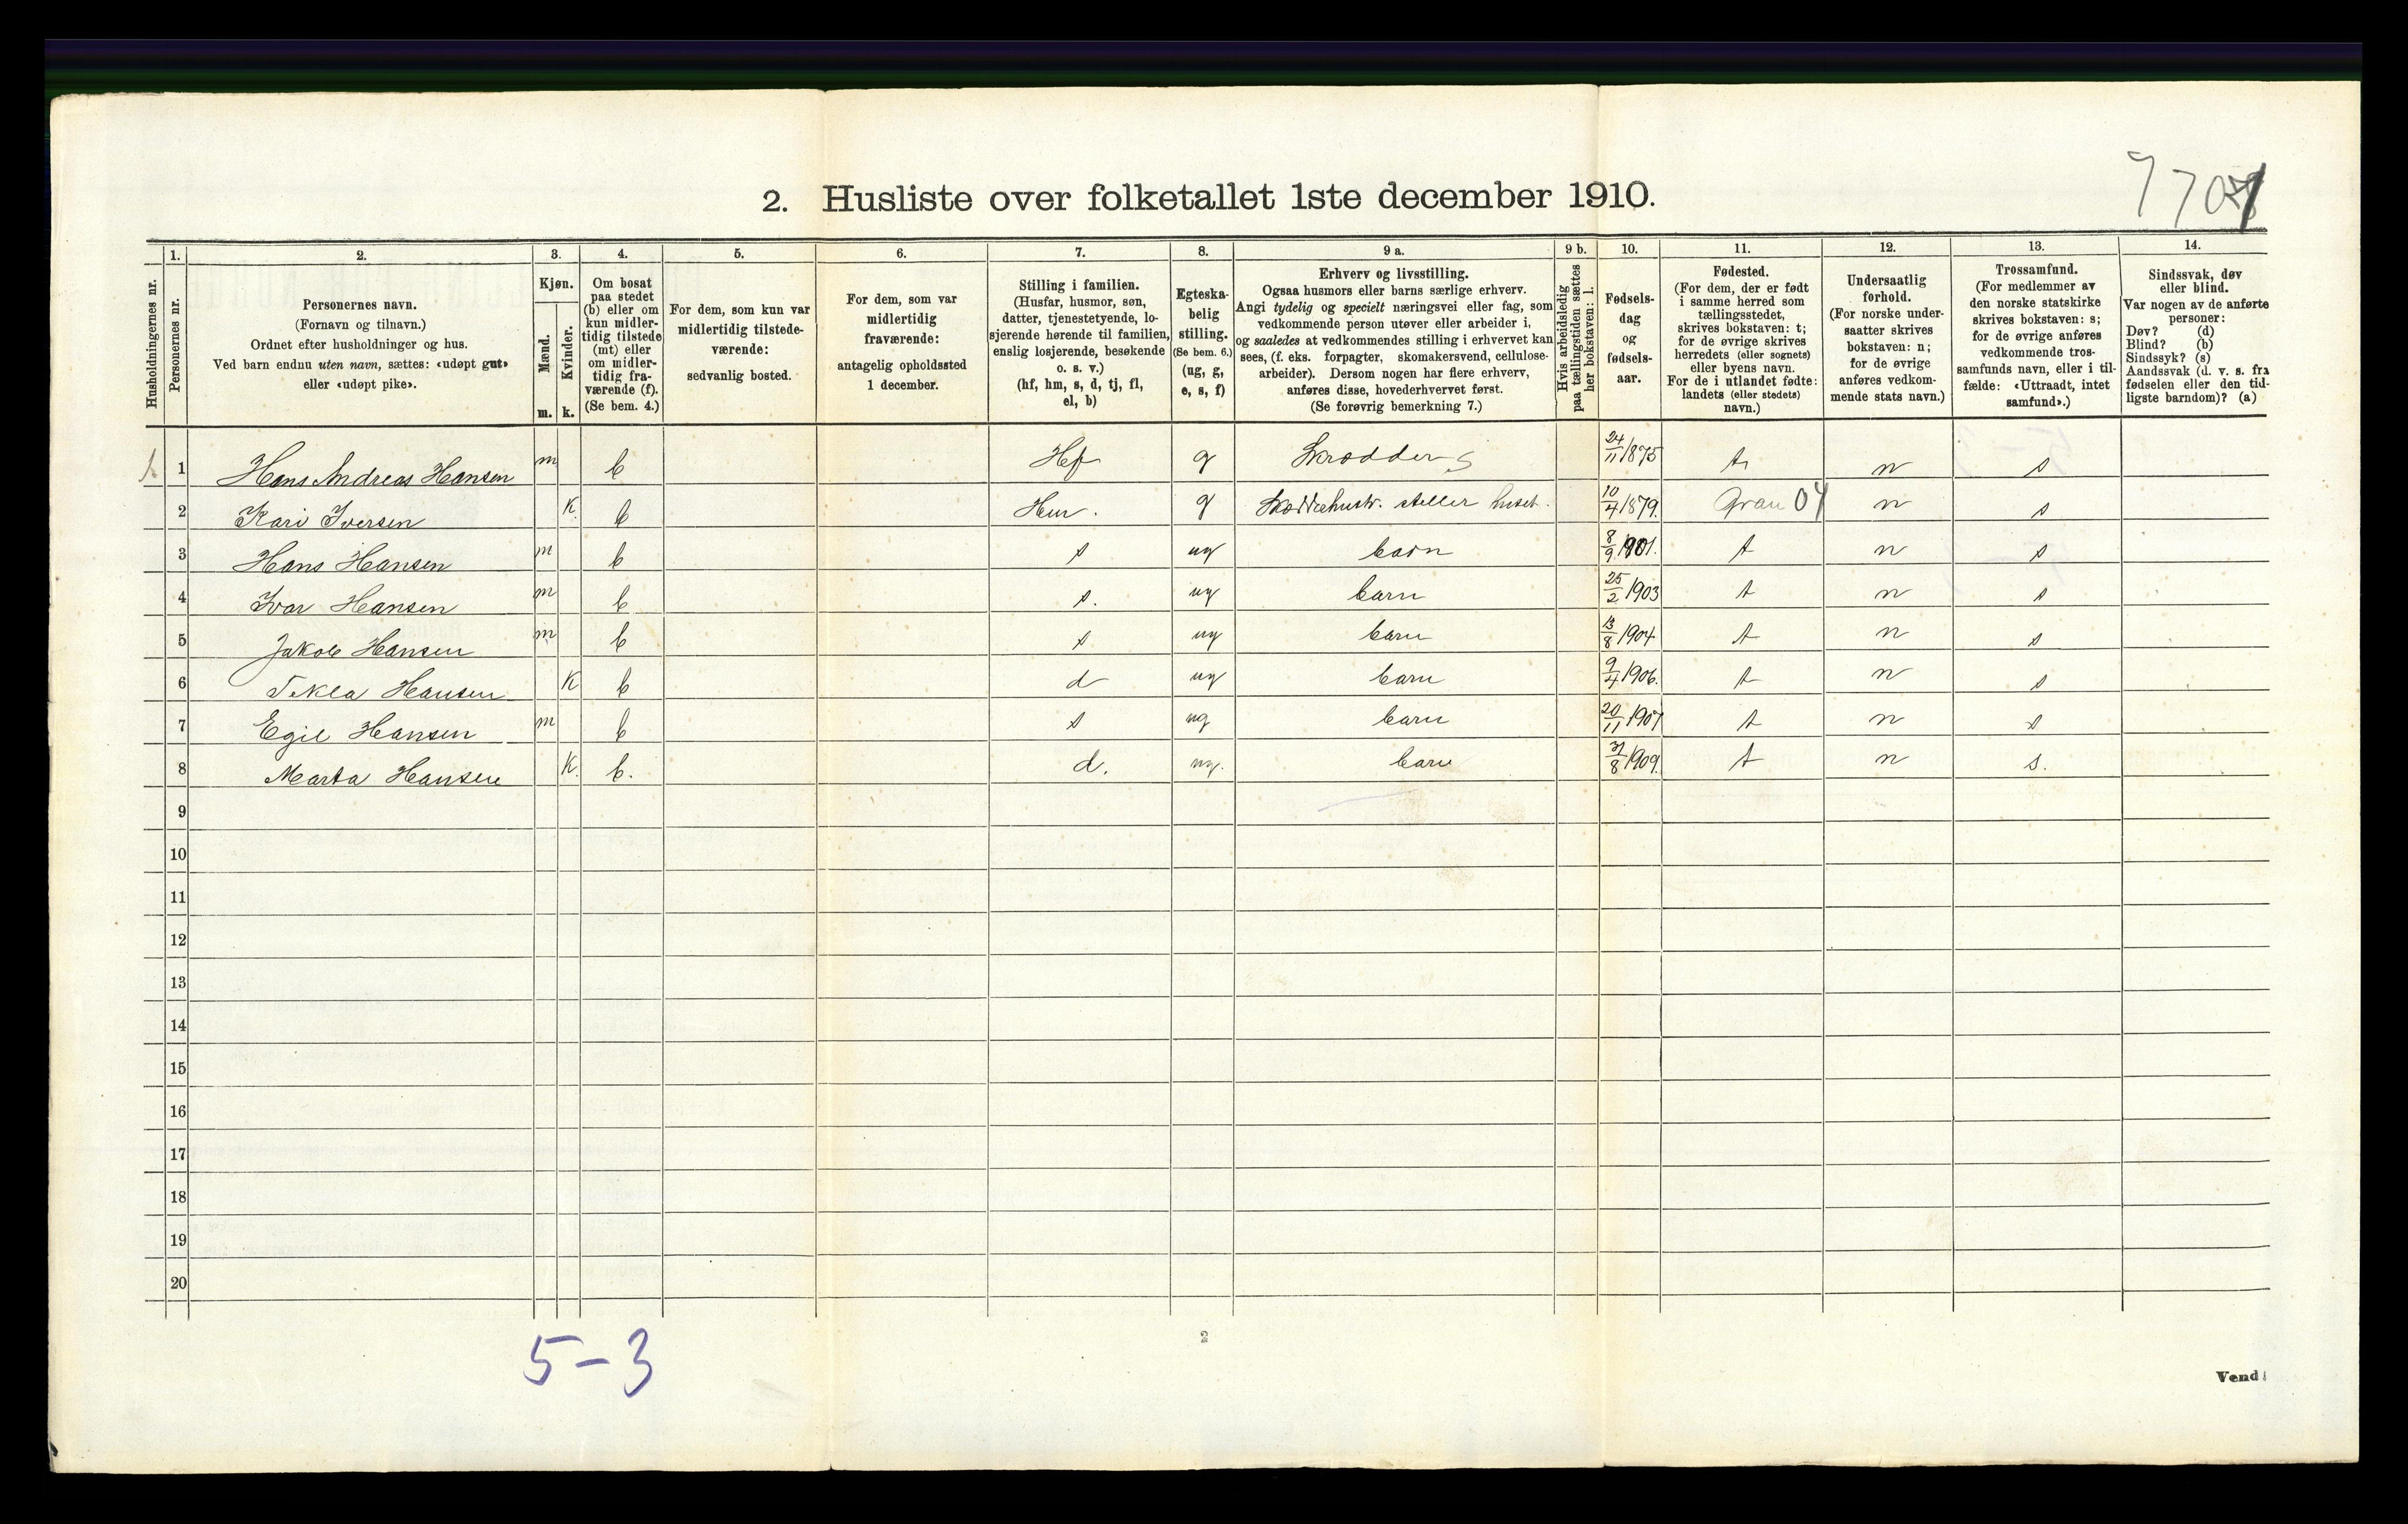 2. Husliste over folketallet 1ste december 1910.
Husholdningernes nr.
1. Personernes nr.
2. Personernes navn.
(Fornavn og tilnavn.)
Ordnet efter husholdninger og hus.
Ved barn endnu uten navn, sættes: «udøpt gut»
eller «udøpt pike».
3. Kjøn.
Mænd. m.
Kvinder. k.
4. Om bosat
paa stedet
(b) eller om
kun midler-
tidig tilstede
(mt) eller
om midler-
tidig fra-
værende (f).
(Se bem. 4.)
5. For dem, som kun var
midlertidig tilstede-
værende:
sedvanlig bosted.
6. For dem, som var
midlertidig
fraværende:
antagelig opholdssted
1 december.
7. Stilling i familien.
(Husfar, husmor, søn,
datter, tjenestetyende, lo-
sjerende hørende til familien,
enslig losjerende, besøkende
o. s. v.)
(hf, hm, s, d, tj, fl,
el, b)
8. Egteska-
belig
stilling.
(Se bem. 6.)
(ug, g,
e, s, f)
9 a. Erhverv og livsstilling.
Ogsaa husmors eller barns særlige erhverv.
Angi tydelig og specielt næringsvei eller fag, som
vedkommende person utøver eller arbeider i,
og saaledes at vedkommendes stilling i erhvervet kan
sees, (f. eks. forpagter, skomakersvend, cellulose-
arbeider). Dersom nogen har flere erhverv,
anføres disse, hovederhvervet først.
(Se forøvrig bemerkning 7.)
9 b. Hvis arbeidsledig
paa tællingstiden sættes
her bokstaven: l.
10. Fødsels-
dag
og
fødsels-
aar.
11. Fødested.
(For dem, der er født
i samme herred som
tællingsstedet,
skrives bokstaven: t;
for de øvrige skrives
herredets (eller sognets)
eller byens navn.
For de i utlandet fødte:
landets (eller stedets)
navn.)
12. Undersaatlig
forhold.
(For norske under-
saatter skrives
bokstaven: n;
for de øvrige
anføres vedkom-
mende stats navn.)
13. Trossamfund.
(For medlemmer av
den norske statskirke
skrives bokstaven: s;
for de øvrige anføres
vedkommende tros-
samfunds navn, eller i til-
fælde: «Uttraadt, intet
samfund».)
14. Sindssvak, døv
eller blind.
Var nogen av de anførte
personer:
Døv? (d)
Blind? (b)
Sindssyk? (s)
Aandssvak (d. v. s. fra
fødselen eller den tid-
ligste barndom)? (a)
1. 1 Hans Andreas Hansen m b Hf g Skrædder 24/11 1875 t n s
2 Kari Iversen K. b Hm. g steller huset. 10/4 1879. Gran 04 n s
3 Hans Hansen m b s ug barn 8/9 1901. t n s
4 Ivar Hansen m b s. ug barn 25/2 1903 t n s
5 Jakob Hansen m b s ug barn 13/8 1904 t n s
6 Tekla Hansen K b d ug barn 9/4 1906. t n s
7 Egil Hansen m b s ug barn 20/11 1907 t n s
8 Marta Hansen K. b. d. ug. barn 31/8 1909. t n s.
9
10
11
12
13
14
15
16
17
18
19
20
5-3
2
Vend!